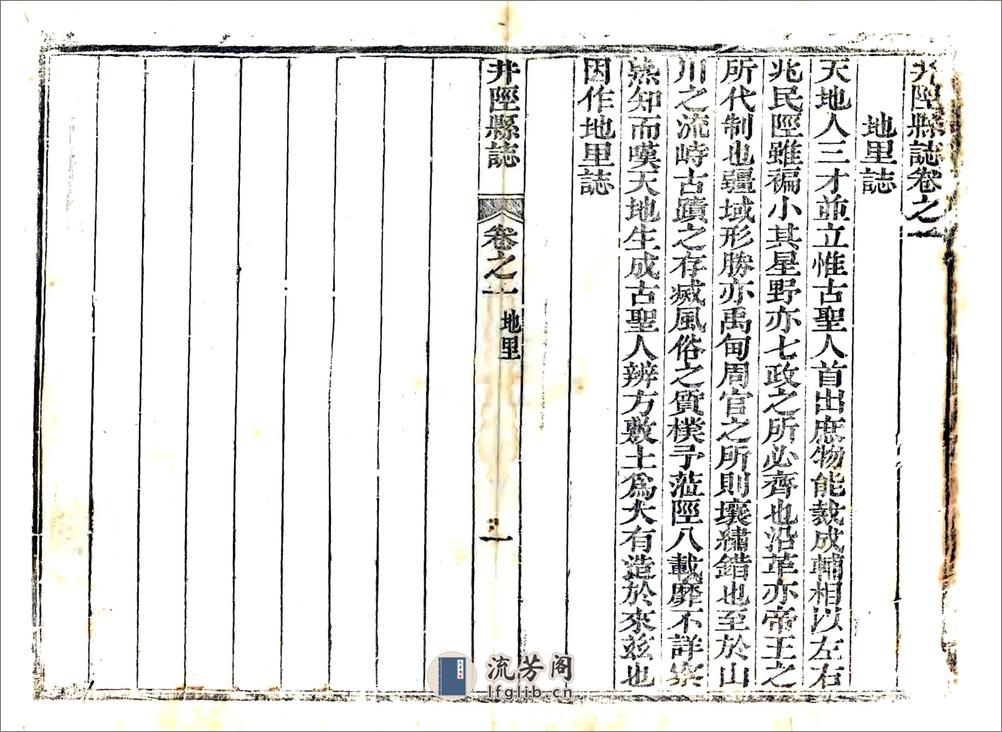 井陘縣誌卷之一
地里誌
天地人三才並立惟古聖人首出庶物能裁成輔相以左右
兆民陘雖褊小其星野亦七政之所必齊也沿革亦帝王之
所代制也疆域形勝亦禹甸周官之所則壤繡錯也至於山
川之流峙古蹟之存滅風俗之質樸予蒞陘八載靡不詳察
熟知而嘆天地生成古聖人辨方敷土爲大有造於來兹也
因作地里誌
井陘縣誌
卷之一
地里
一
流芳阁
lfglib.cn